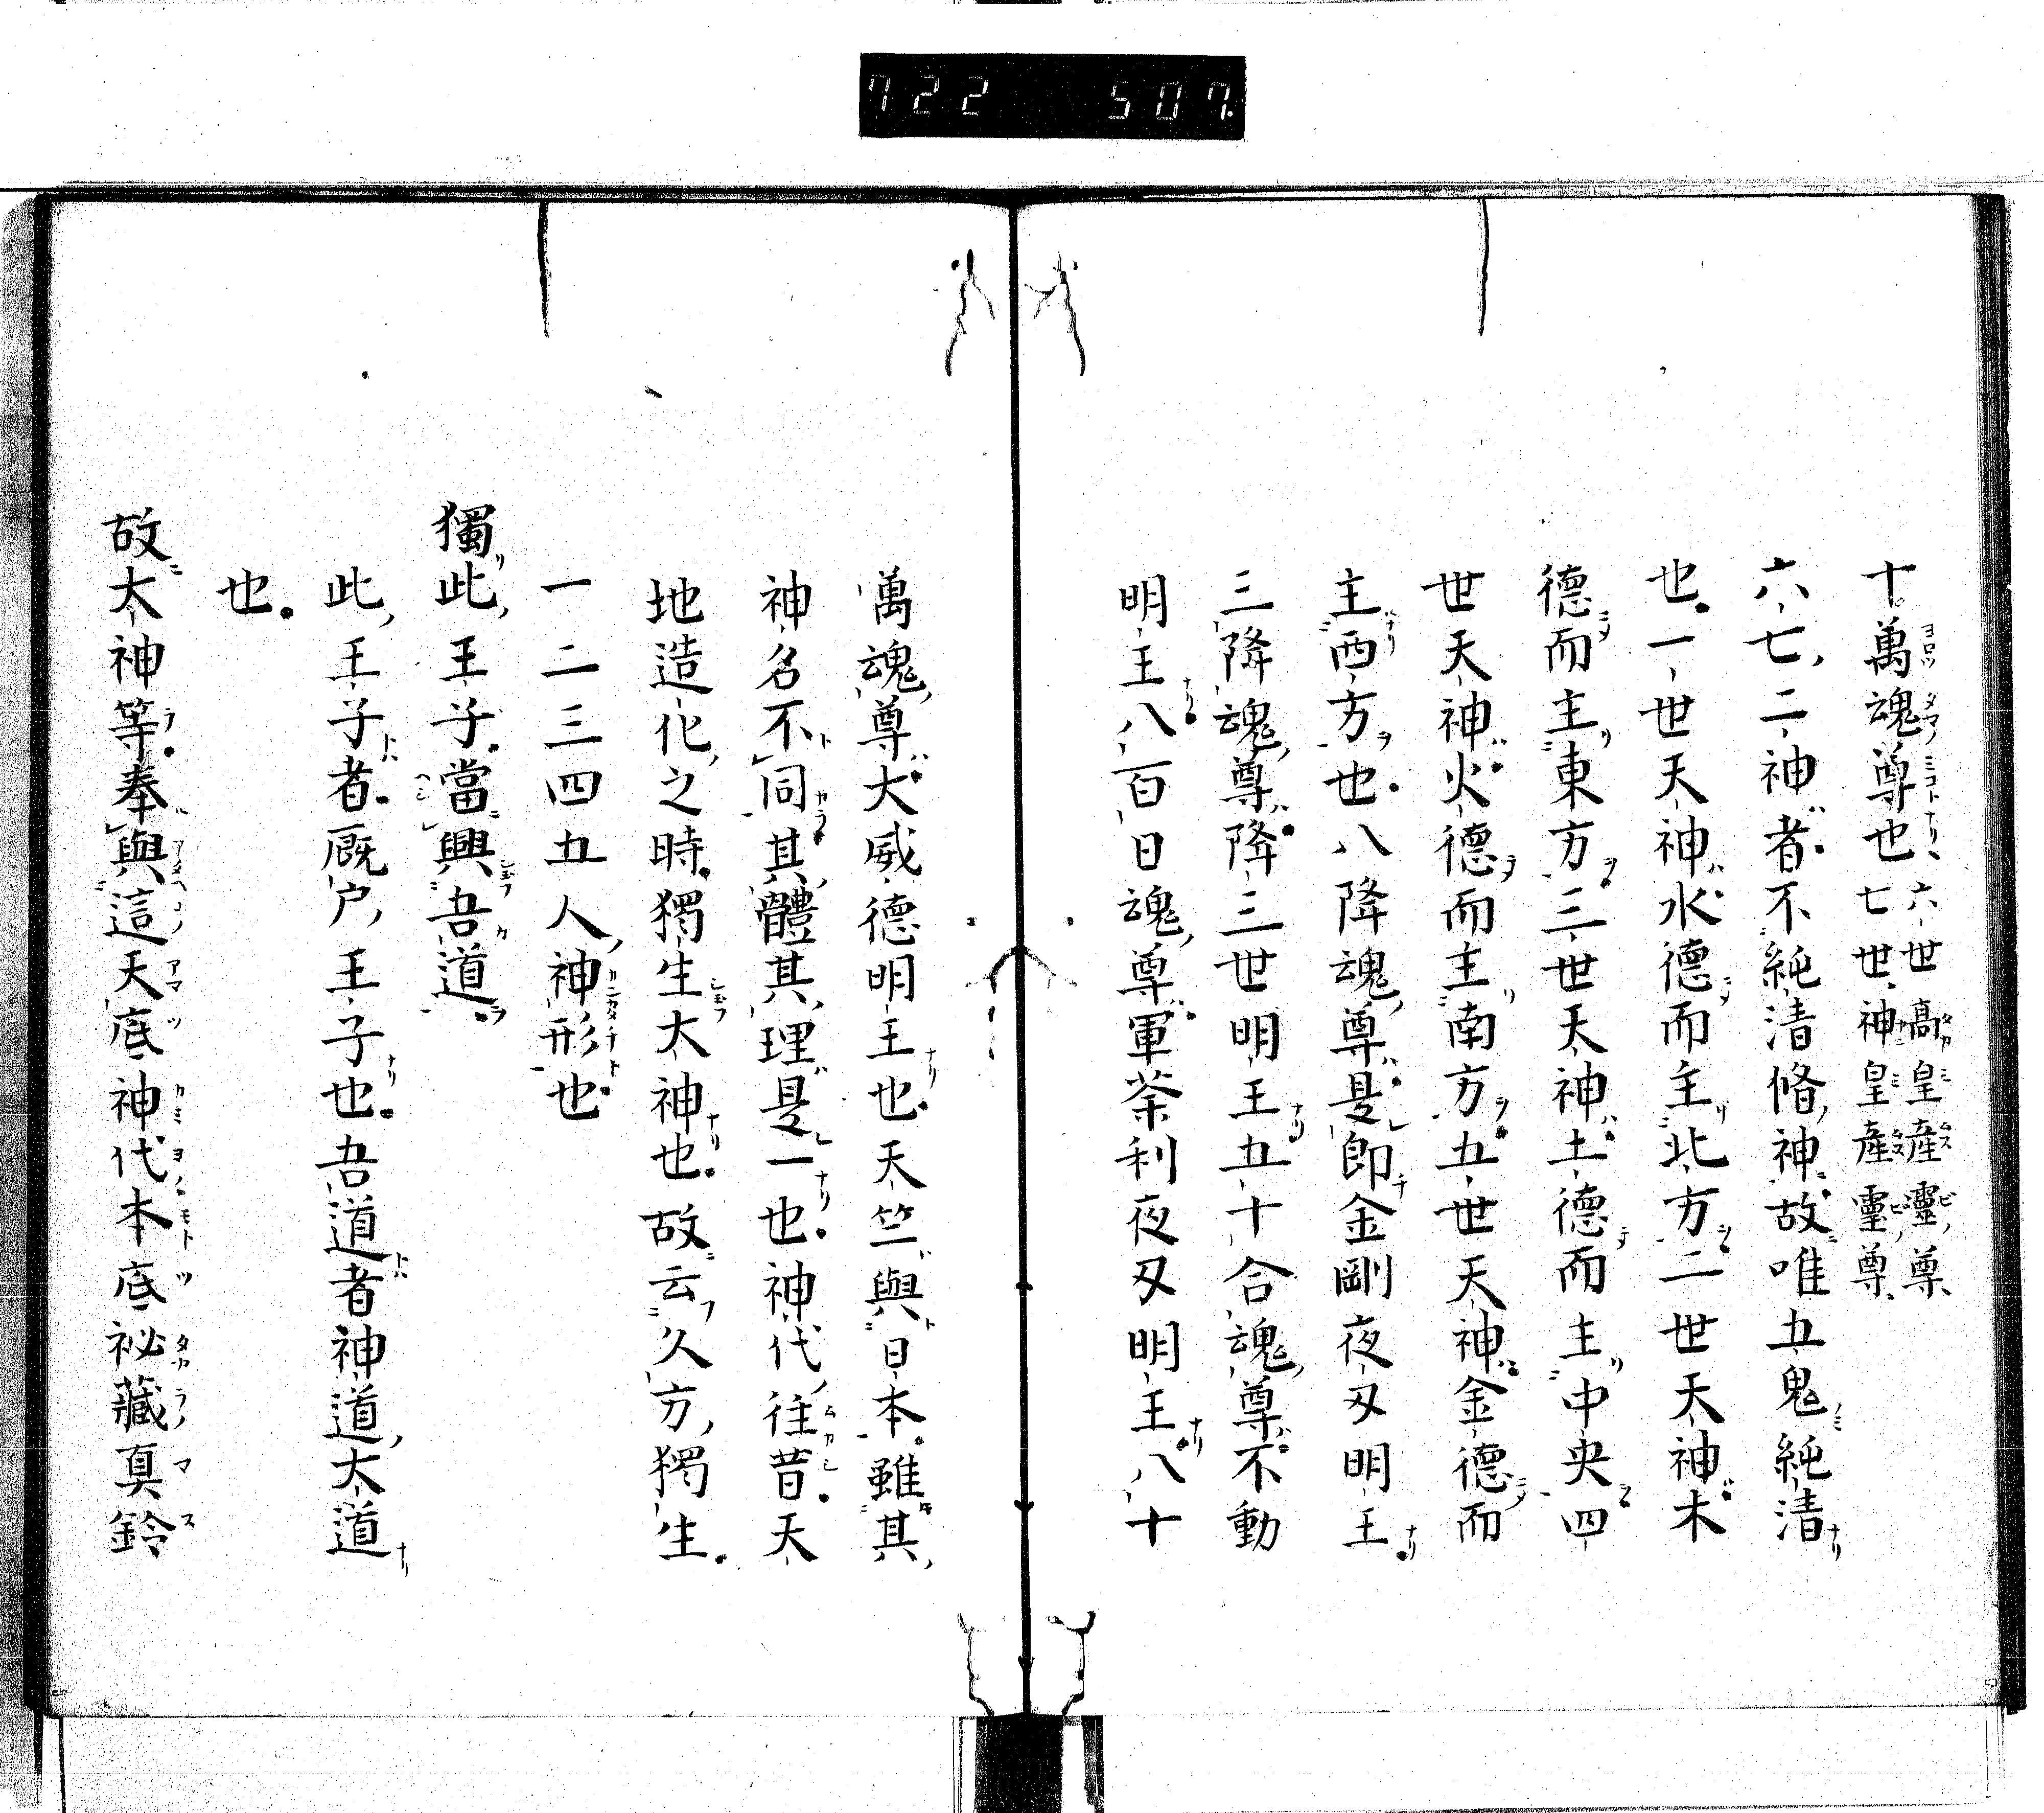 722 507.
十萬魂尊也 六世高皇產靈尊
七世神皇產靈尊
六七二神者不純清脩神故唯五鬼純清
也一世天神水德而主北方二世天神木
德而主東方三世天神土德而主中央四
世天神火德而主南方五世天神金德而
主西方也八降魂尊是即金剛夜叉明王
三降魂尊降三世明王五十合魂尊不動
明王八百日魂尊軍荼利夜叉明王八十
萬魂尊大威德明王也天竺與日本雖其
神名不同其體其理是一也神代往昔天
地造化之時獨生大神也故云久方獨生
一二三四五人神形也
獨此王子當興吾道
此王子者厩户王子也吾道者神道大道
也
故大神等奉與這天底神代本底祕藏真鈴